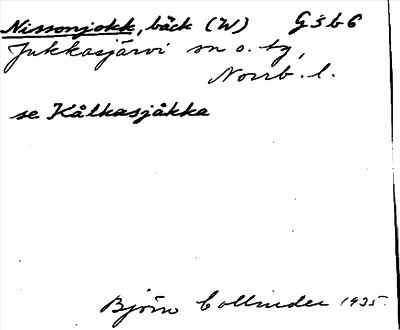 Nissonjokk, bäck (W) G5b6
Jukkasjärvi sn o. tg,
Norrb. l.
se Kålkasjåkka
Björn Collinder 1935.